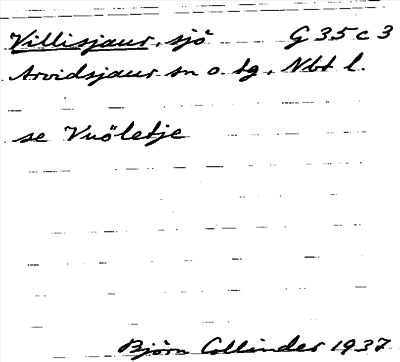 Villisjaur, sjö G 35 c 3
Arvidsjaur sn o. tg, Nbt l.
se Vuöletje
Björn Collinder 1937